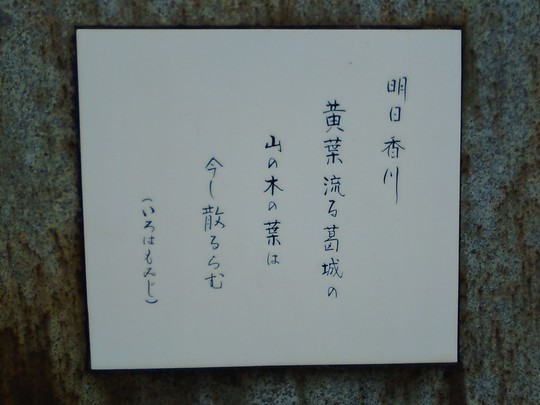 明日香川
黄葉流る葛城の
山の木の葉は
今し散るらむ
(いろはもみじ)